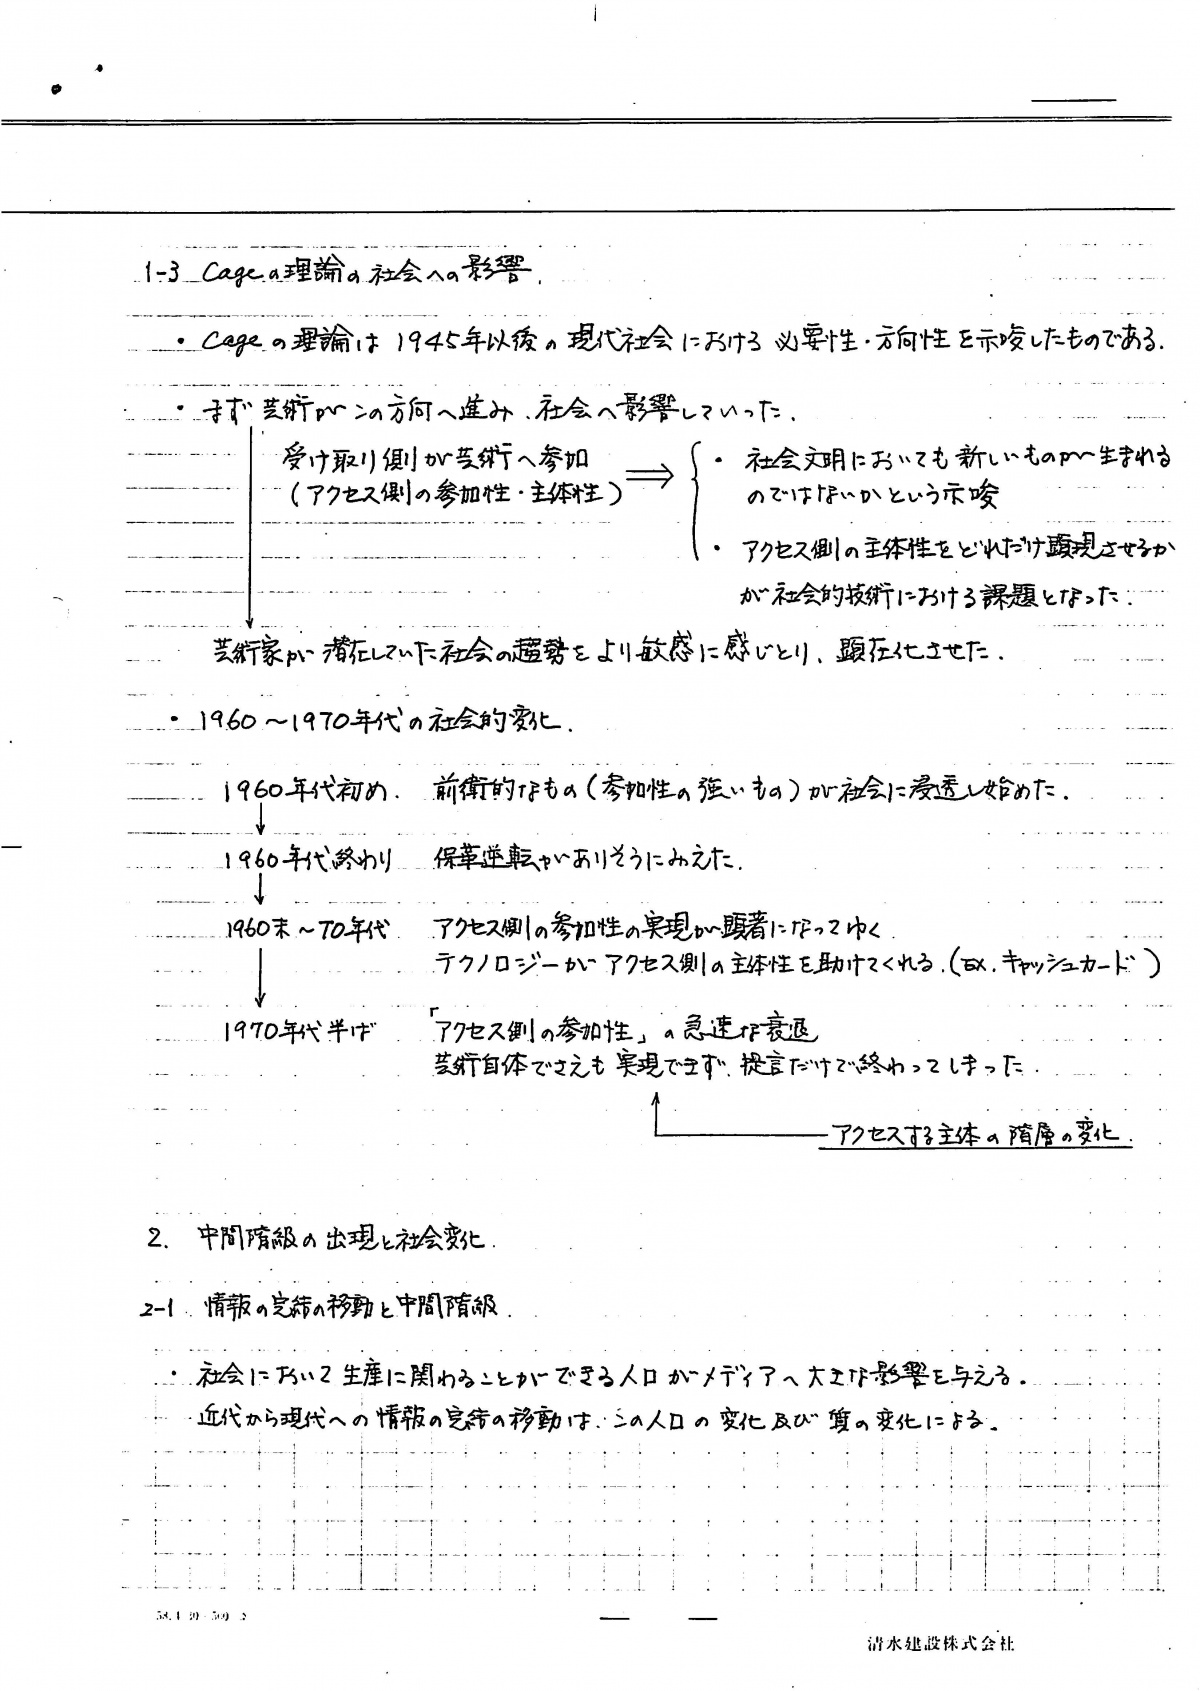 1-3 Cageの理論の社会への影響.
・Cageの理論は1945年以後の現代社会における必要性・方向性を示唆したものである.
・まず芸術がこの方向へ進み、社会へ影響していった.
受け取り側が芸術へ参加
(アクセス側の参加性・主体性)
⇒
・社会文明においても新しいものが生まれる
のではないかという示唆
・アクセス側の主体性をどれだけ顕現させるか
が社会的技術における課題となった.
芸術家が潜在していた社会の趨勢をより敏感に感じとり、顕在化させた.
・1960~1970年代の社会的変化.
1960年代初め. 前衛的なもの(参加性の強いもの)が社会に浸透し始めた.
1960年代終わり 保革逆転がありそうにみえた.
1960末~70年代 アクセス側の参加性の実現が顕著になってゆく
テクノロジーがアクセス側の主体性を助けてくれる.(EX.キャッシュカード)
1970年代半ば 「アクセス側の参加性」の急速な衰退
芸術自体でさえも実現できず、提言だけで終わってしまった.
アクセスする主体の階層の変化.
2. 中間階級の出現と社会変化.
2-1 情報の完結の移動と中間階級.
・社会において生産に関わることができる人口がメディアへ大きな影響を与える.
近代から現代への情報の完結の移動は、この人口の変化及び質の変化による.
清水建設株式会社